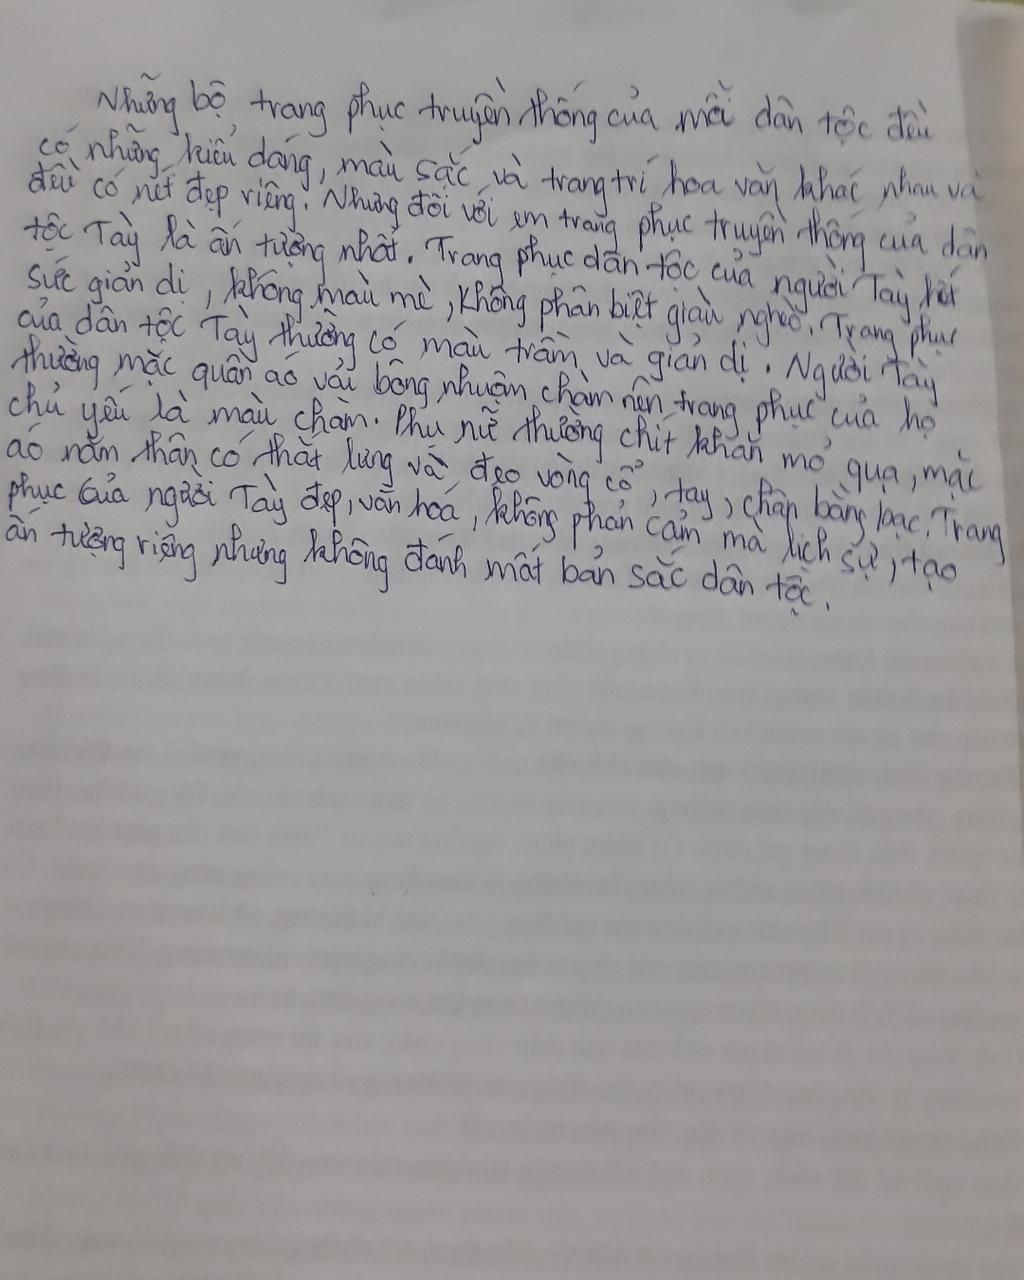 Những bộ trang phục truyền thống của mỗi dân tộc đều
có những kiểu dáng, màu sắc và trang trí hoa văn khác nhau và
đều có nét đẹp riêng. Nhưng đối với em trang phục truyền thống của dân
tộc Tày là ấn tượng nhất. Trang phục dân tộc của người Tày hết
sức giản dị, không màu mè, không phân biệt giàu nghèo. Trang phục
của dân tộc Tày thường có màu trầm và giản dị. Người Tày
thường mặc quần áo vải bông nhuộm chàm nên trang phục của họ
chủ yếu là màu chàm. Phụ nữ thường chít khăn mỏ quạ, mặc
áo năm thân có thắt lưng và đeo vòng cổ, tay, chân bằng bạc. Trang
phục của người Tày đẹp, văn hoá, không phản cảm mà lịch sự, tạo
ấn tượng riêng nhưng không đánh mất bản sắc dân tộc.